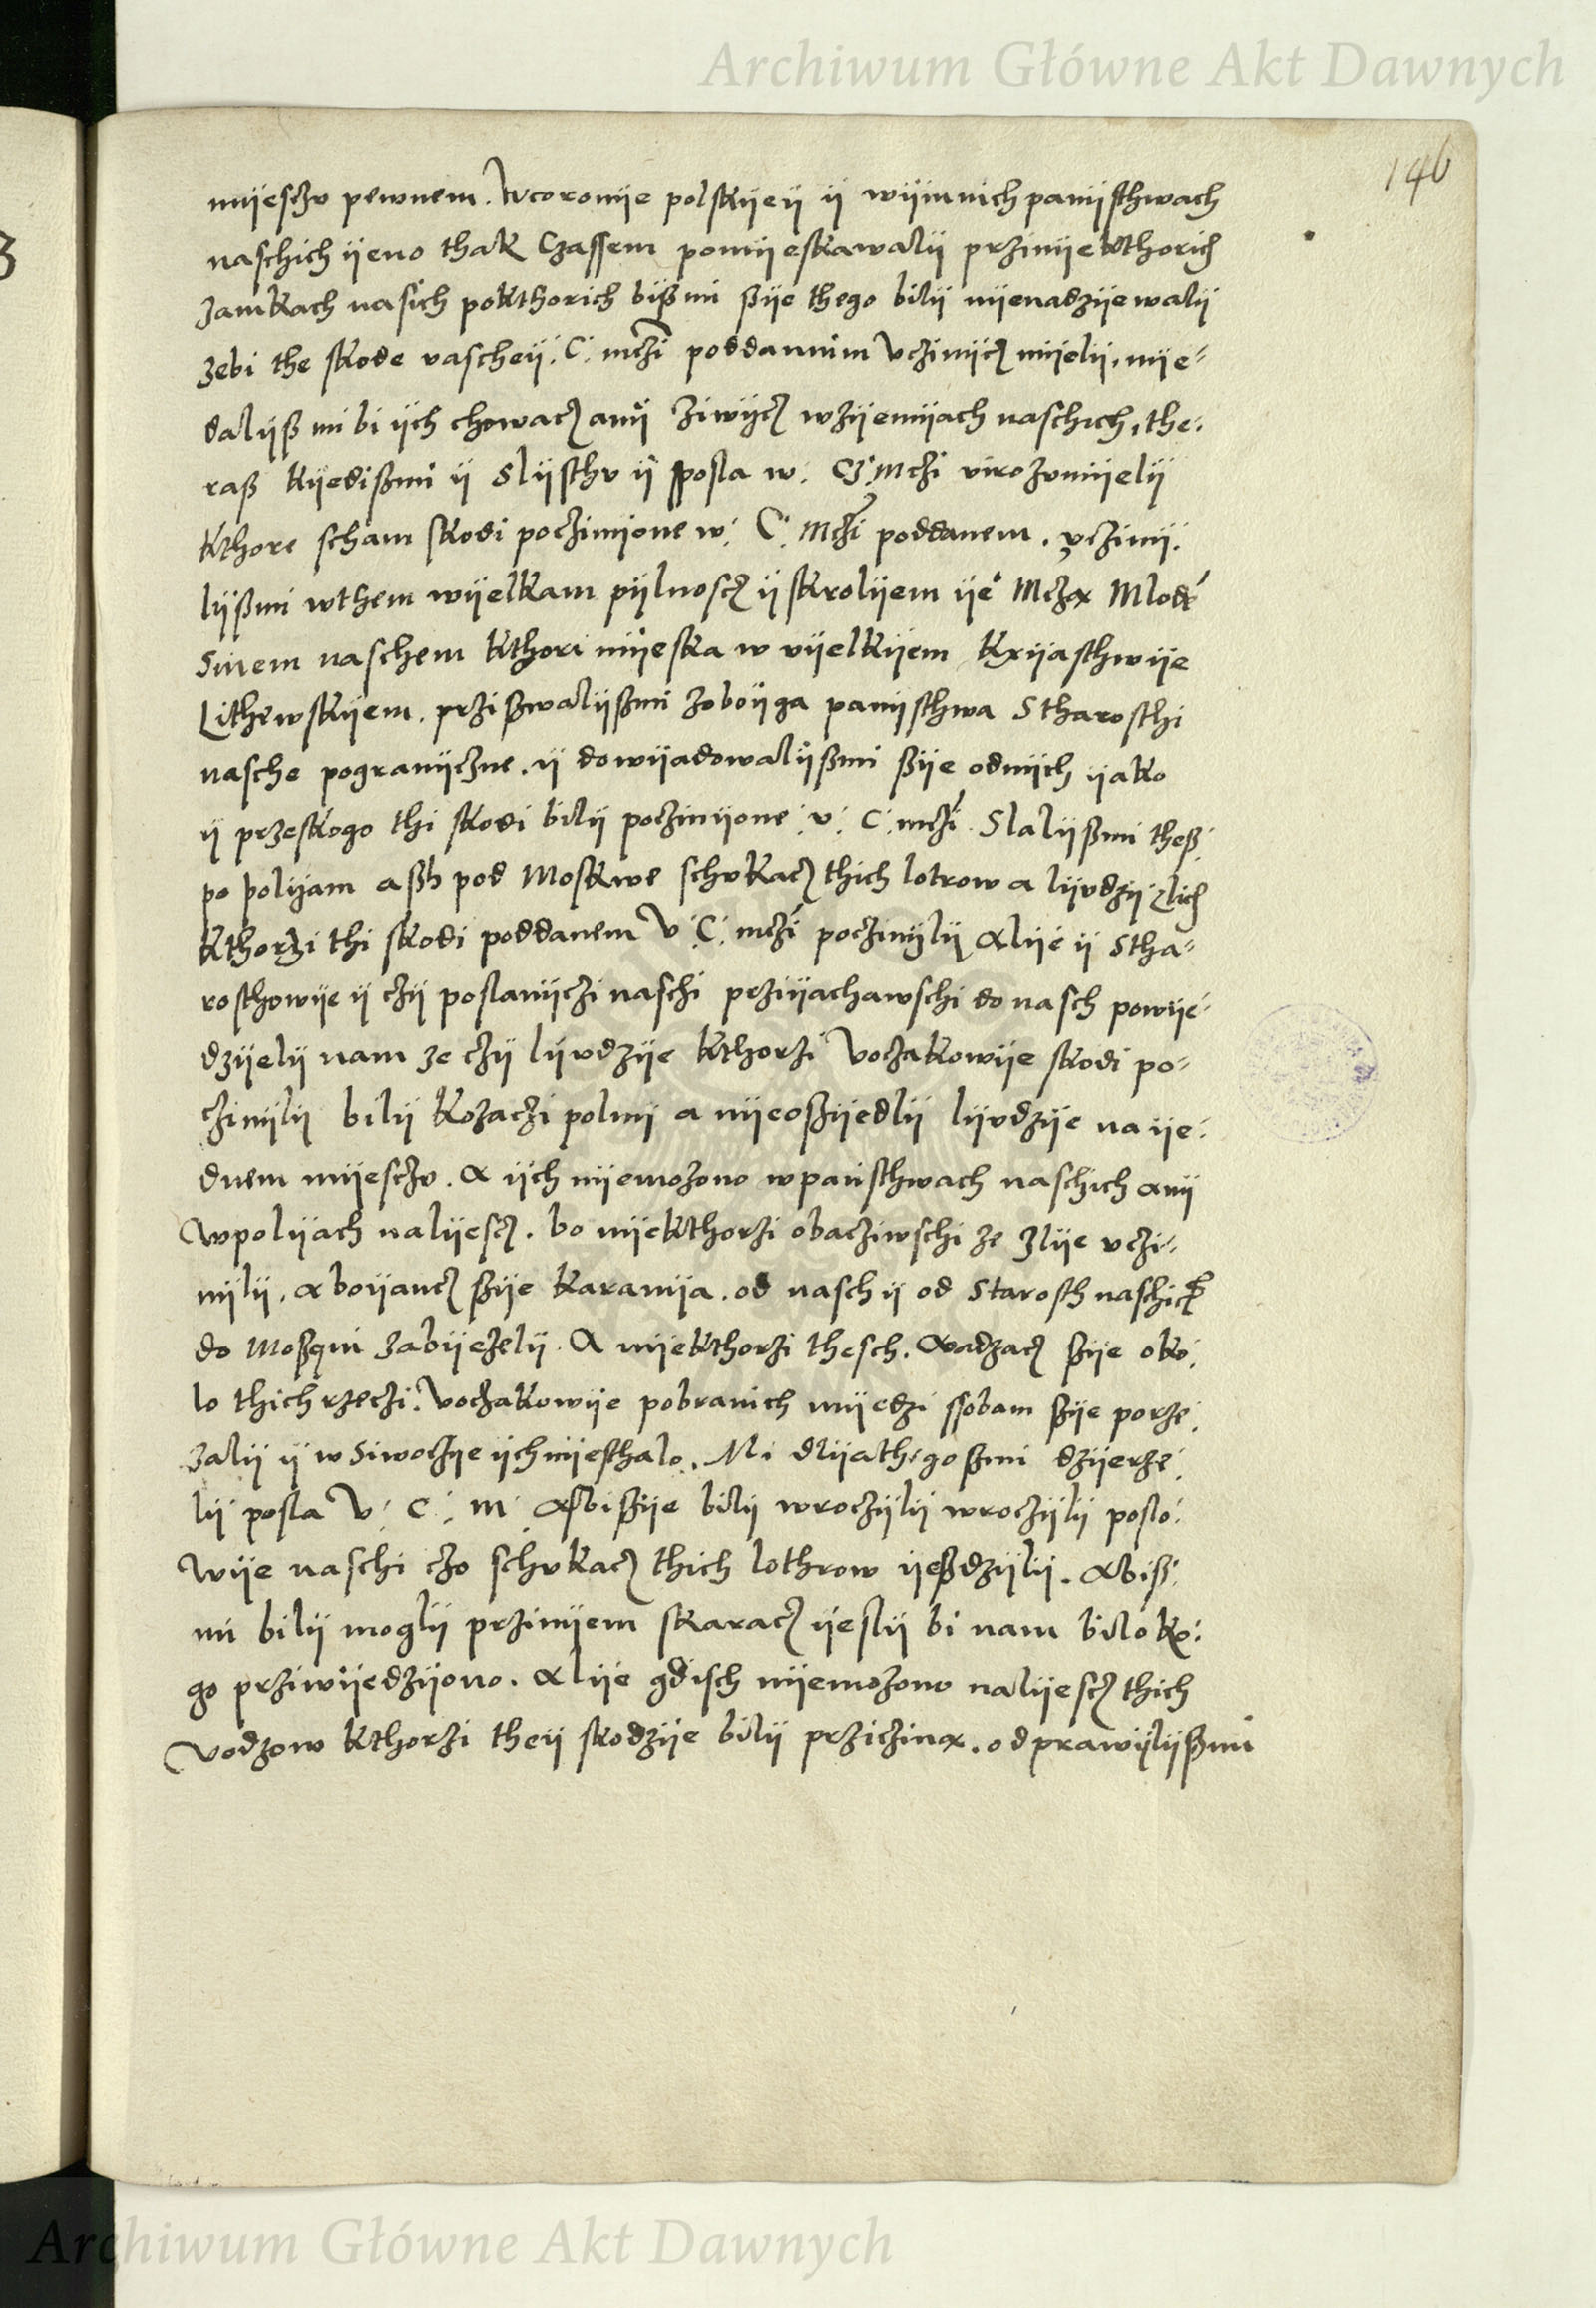 Archiwum Główne Akt Dawnych
146
mijesczv pewnem. Wcoronije polskijeij ij wijnnich panijsthwach
naschich ijeno thak Czassem pomijeskawalij przinijekthorich
zamkach nasich pokthorich bißmi ßije thego bilij nijenadzijewalij
zebi the skode vascheij. C. mczi poddannim Vczinijcz mijelij, nije-
dalijß mi bi ijch chowacz anij ziwijcz wzijemijach naschich, the-
raß kijedißmi ij Slijsthv ij posla w. Cz. mczi virozvmijelij
kthore scham skodi poczinijone w. C. mczi poddanem. vczinij-
lijßmi wthem wijelkam pijlnoscz ij skrolijem ije° Mcza Mlod
Sinem naschem kthori mijeska w vijelkijem Kxijasthwije
Lithewskijem. przißwalijßmi zoboijga panijsthwa Starosthi
nasche pogranijczne. ij dowijadowalijßmi ßije odnijch ijako
ij przeskogo thi skodi bilij poczinijone v. C. mczi. Slalijßmi theß
po polijam aßh pod Moskwe schvkacz thich lotrow a lijvdzij zlich
kthorzi thi skodi poddanem V. C. mczi poczinijlij Alije ij Stha-
rosthowije ij czij poslanijczi naschi prziijachawschi do nasch powije-
dzijelij nam ze czij lijvdzije kthorzi Voczakowije skodi po-
czinijlij bilij kozaczi polnij a nijeoßijedlij lijvdzije na ije-
dnem mijesczv. A ijch nijemozono wpansthwach naschich anij
wpolijach nalijescz. bo nijekthorzi obacziwschi ze zlije vczi-
nijlij, a boijancz ßije karanija. od nasch ij od Starosth naschich
do Moßqui zabijezelij. A nijekthorzi thesch. Wadzacz ßije oko-
lo thich rzeczi. Voczakowije pobranich mijedzi ssobam ßije porze-
zalij ij w Siwoczije ijch nijesthalo. Mi dlijathegoßmi dzijerze-
lij posla V. C. m. Abißije bilij wroczijlij wroczijlij poslo-
wije naschi czo schvkacz thich lothrow ijeßdzijlij. Abiß-
mi bilij moglij przinijem skaracz ijeslij bi nam bilo ko-
go prziwijedzijono. Alije gdisch nijemozono nalijescz thich
vodzow kthorzi theij skodzije bilij prziczina. odprawijlijßmi
Archiwum Główne Akt Dawnych